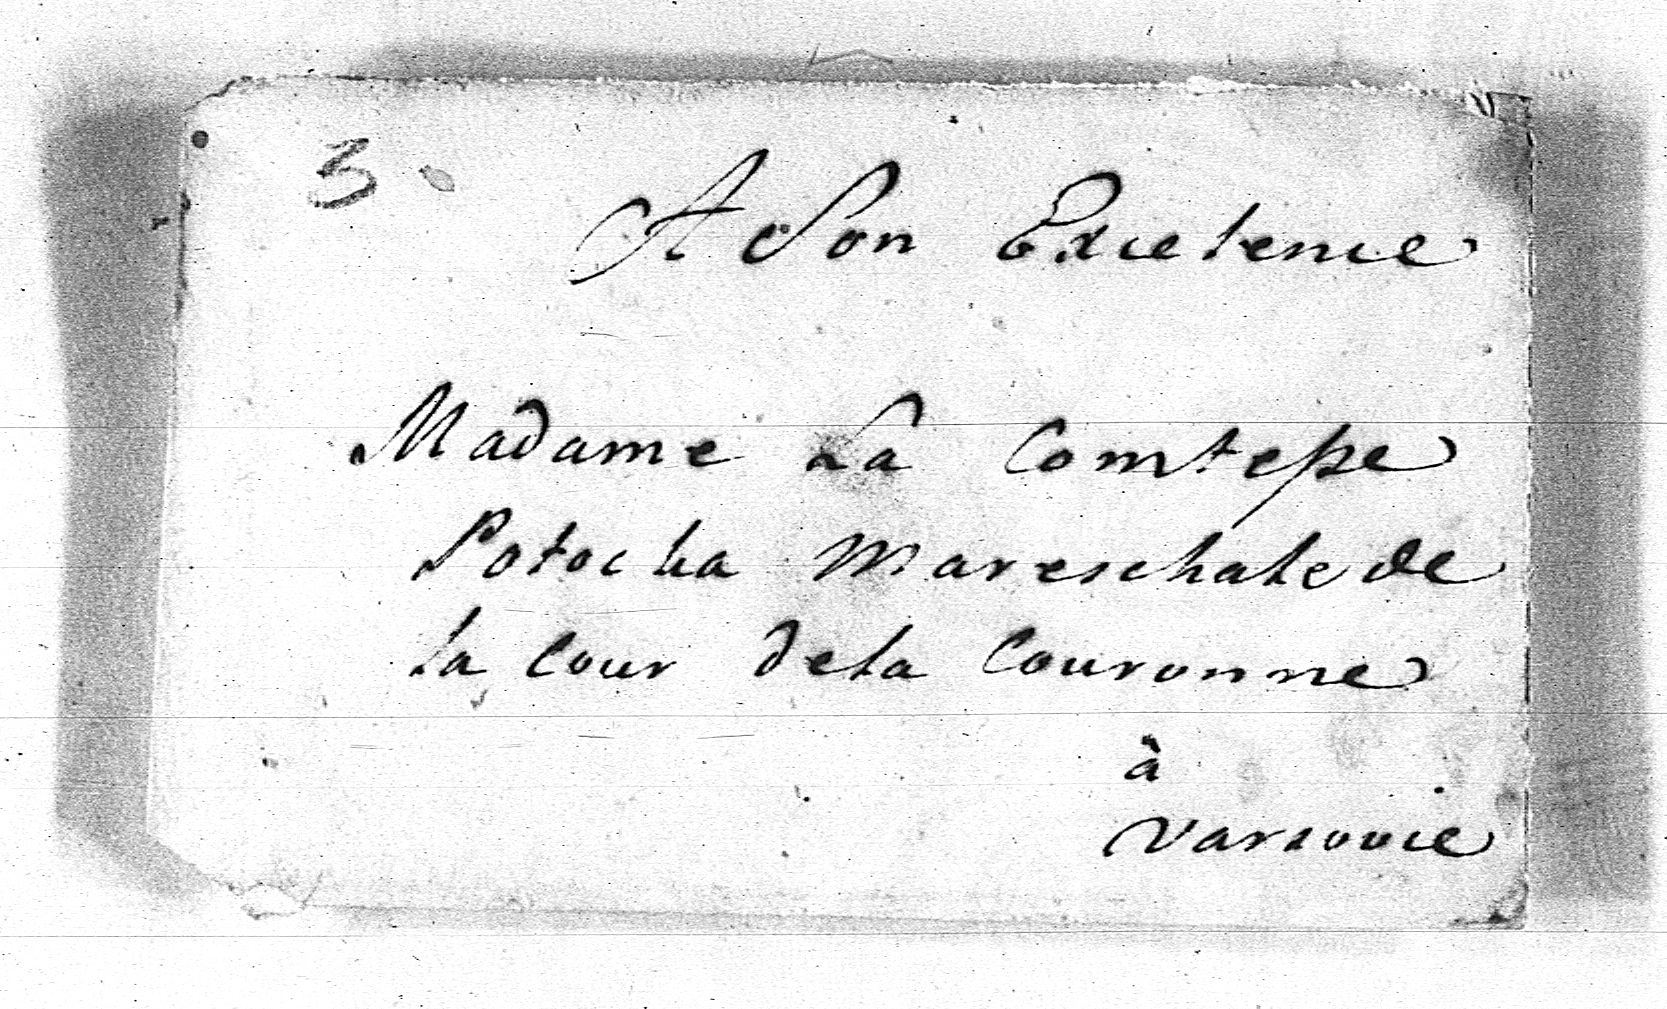 3.
A Son Excelence
Madame La Comtesse
Potocka Mareschale de
la Cour de la Couronne
à
Varsovie